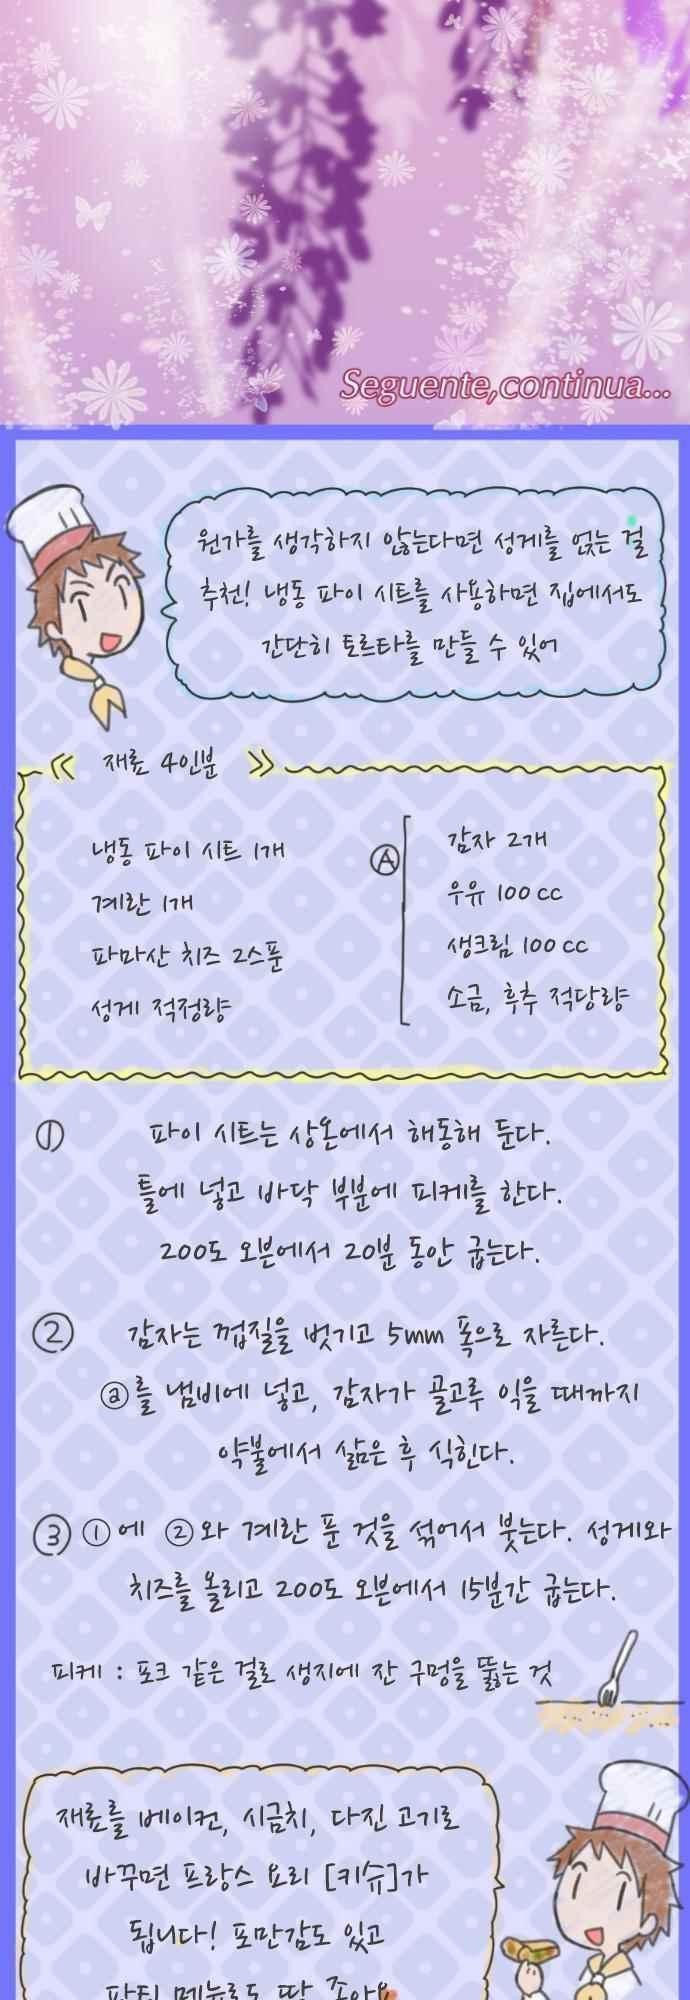 Seguente,continua...
원가를 생각하지 않는다면 성게를 얹는 걸
추천! 냉동 파이 시트를 사용하면 집에서도
간단히 토르타를 만들 수 있어
≪ 재료 4인분 ≫
냉동 파이 시트 1개
계란 1개
파마산 치즈 2스푼
성게 적정량
Ⓐ
감자 2개
우유 100 cc
생크림 100 cc
소금, 후추 적당량
① 파이 시트는 상온에서 해동해 둔다.
틀에 넣고 바닥 부분에 피케를 한다.
200도 오븐에서 20분 동안 굽는다.
② 감자는 껍질을 벗기고 5mm 폭으로 자른다.
ⓐ를 냄비에 넣고, 감자가 골고루 익을 때까지
약불에서 삶은 후 식힌다.
③ ①에 ②와 계란 푼 것을 섞어서 붓는다. 성게와
치즈를 올리고 200도 오븐에서 15분간 굽는다.
피케 : 포크 같은 걸로 생지에 잔 구멍을 뚫는 것
재료를 베이컨, 시금치, 다진 고기로
바꾸면 프랑스 요리 [키슈]가
됩니다! 포만감도 있고
파티 메뉴로도 딱 좋아요